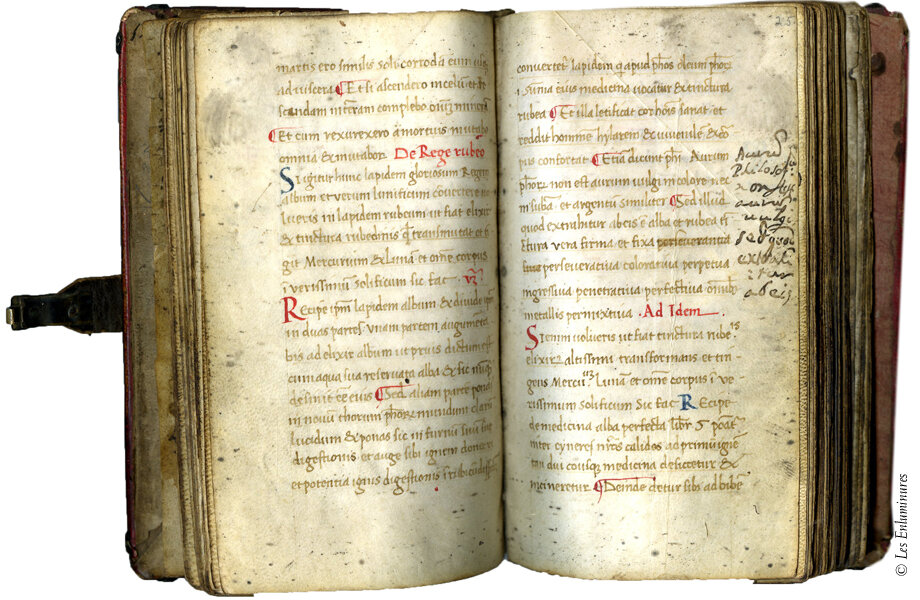 martis ero similis soli corroda eum usq
ad viscera Et si ascendero in celum et de
scendam in terram complebo
Et cum rexurexero a mortuis mutabo
omnia et mutabor De Rege rubeo
Si igitur hunc lapidem gloriosum Regem
album et verum lunificum convertere vo
lueris in lapidem rubeum ut fiat elixir
et tinctura rubedinis q transmutat et ti
git Mercurium et luna et ome corpus
i verissimu solificum sic fac
Recipe ipm lapidem album et divide ipm
in duas partes unam partem augmenta
bis ad elixir album ut prius dictum est
cum aqua sua reservata alba et sic nunq
definit esse eius Sed aliam parte pona
in novu thorum phorum mundum claru
lucidum et ponas sic in furnu suu
digestionis et auge sibi ignem donec vi
et potentia ignis digestionis
25
convertet lapidem q apud phos oleum phor
i summa eius medicina vocatur et tinctura
rubea Et illa letificat cor hois sanat et
reddit homine hylarem et iuvenile et
pus confortat Etia dicunt phi Aurum
phor non est aurum vulgi in colore nec
in suba et argentu similiter Sed illud
quod extrahitur ab eis e alba et rubea ti
ctura vera firma et fixa perseverantia
perseverativa colorativa perpetua
ingressiva penetrativa perfectiva omib
metallis permixtiva Ad Idem
Si enim volueris ut fiat tinctura rube
elixir altissimi transformans et tin
gens Mercu Lunam et ome corpus i ve
rissimum solificum Sic fac Recipe
de medicina alba perfecta libr 5 poat
inter cyneres nros calidos ad primu ignē
tan dui cousq medicina desiccetur et
incineretur Deinde detur sibi ad bibe
Aurum
Philosoph
non est
aurum
vulgi
sed quod
extrahi
tur
ab eis
© Les Enluminures